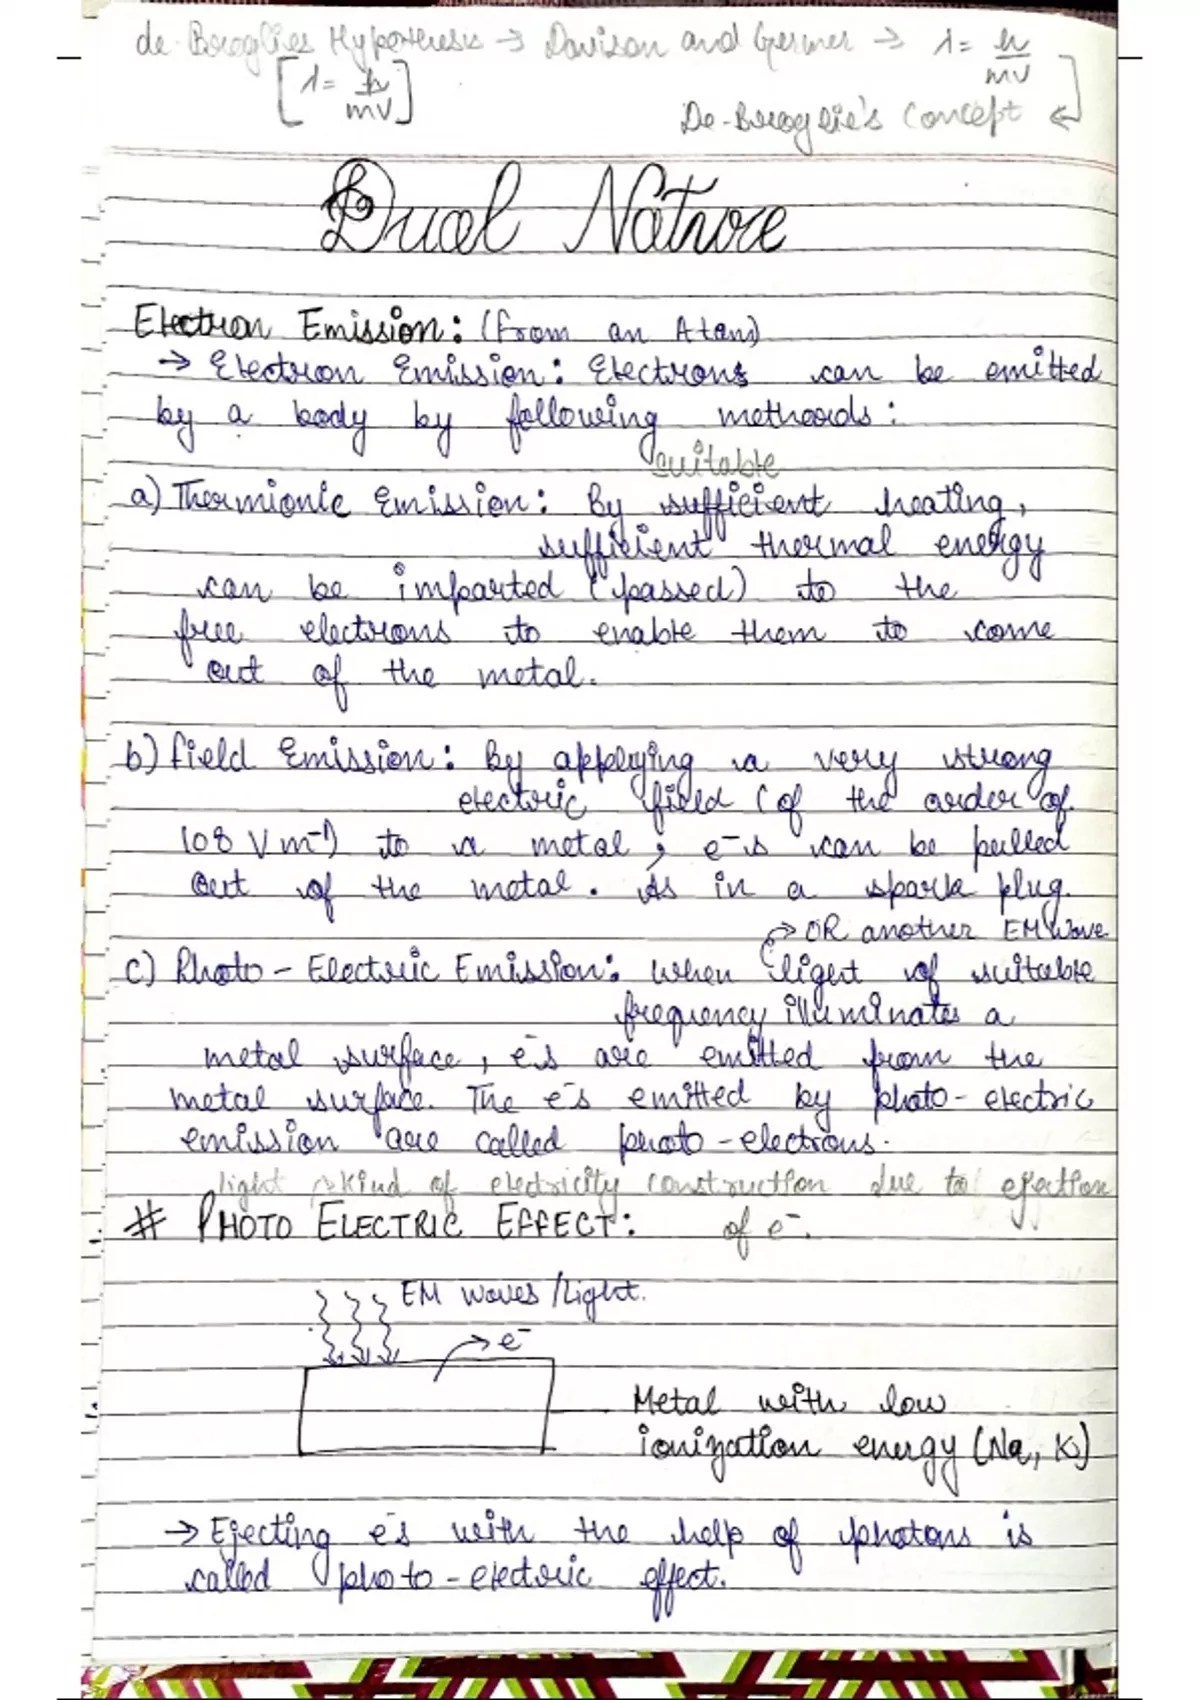 de-Broglies Hypothesis → Davison and Germer → λ = h/mv
[λ = h/mv]
De-Broglie's Concept ↵
Dual Nature
Electron Emission: (From an Atom)
→ Electron Emission: Electrons can be emitted
by a body by following methods:
suitable
a) Thermionic Emission: By sufficient heating,
sufficient thermal energy
can be imparted (passed) to the
free electrons to enable them to come
out of the metal.
b) Field Emission: By applying a very strong
electric field (of the order of
108 Vm⁻¹) to a metal, e⁻s can be pulled
out of the metal. As in a spark plug.
→ OR another EM Wave
c) Photo-Electric Emission: When light of suitable
frequency illuminates a
metal surface, e⁻s are emitted from the
metal surface. The e⁻s emitted by photo-electric
emission are called photo-electrons.
light kind of electricity construction due to ejection
# PHOTO ELECTRIC EFFECT: of e⁻.
EM waves/Light.
→ e⁻
Metal with low
ionization energy (Na, K)
→ Ejecting e⁻s with the help of photons is
called photo-electric effect.